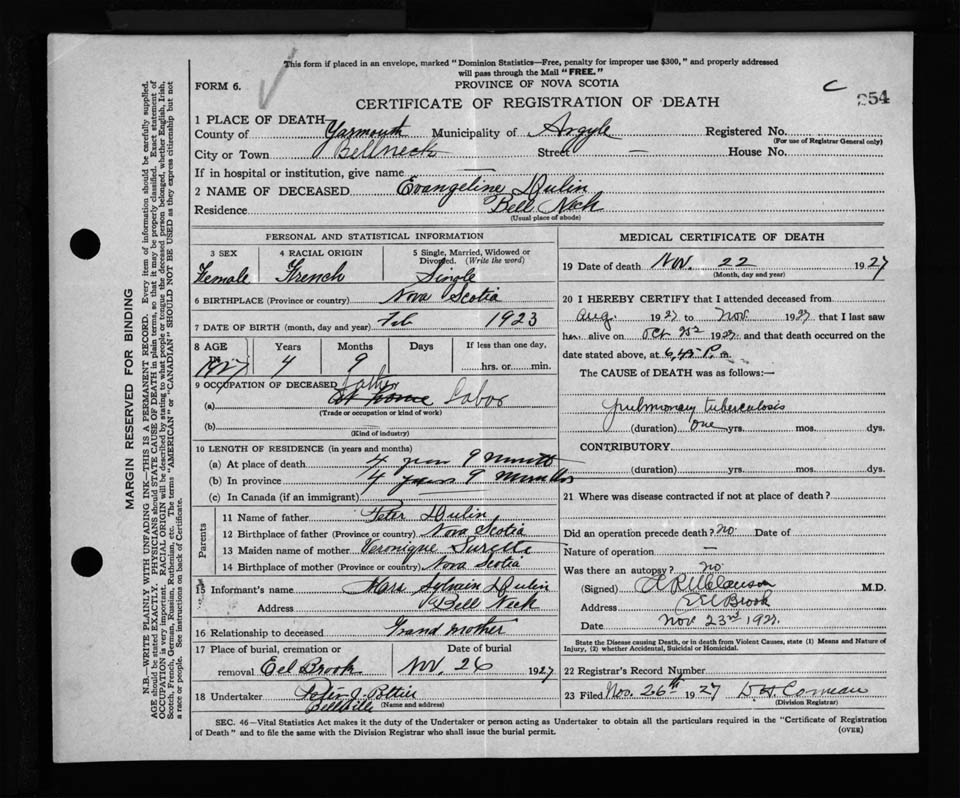 This form if placed in an envelope, marked "Dominion Statistics—Free, penalty for improper use $300," and properly addressed
will pass through the Mail "FREE."
FORM 6.
PROVINCE OF NOVA SCOTIA
C 254
CERTIFICATE OF REGISTRATION OF DEATH
1 PLACE OF DEATH
County of Yarmouth Municipality of Argyle Registered No.
(For use of Registrar General only)
City or Town Bellneck Street — House No.
If in hospital or institution, give name —
2 NAME OF DECEASED Evangeline Dulin
Residence Bell Neck
(Usual place of abode)
PERSONAL AND STATISTICAL INFORMATION
3 SEX 4 RACIAL ORIGIN 5 Single, Married, Widowed or
Divorced. (Write the word)
Female French Single
6 BIRTHPLACE (Province or country) Nova Scotia
7 DATE OF BIRTH (month, day and year) Feb 1923
8 AGE Years Months Days If less than one day,
4 9 hrs. or min.
9 OCCUPATION OF DECEASED father
(a) at home Labor
(Trade or occupation or kind of work)
(b)
(Kind of industry)
10 LENGTH OF RESIDENCE (in years and months)
(a) At place of death 4 years 9 months
(b) In province 4 years 9 months
(c) In Canada (if an immigrant)
Parents
11 Name of father Peter Dulin
12 Birthplace of father (Province or country) Nova Scotia
13 Maiden name of mother Veronique Surette
14 Birthplace of mother (Province or country) Nova Scotia
15 Informant's name Mars Sylvain Dulin
Address Bell Neck
16 Relationship to deceased Grand mother
17 Place of burial, cremation or Date of burial
removal Eel Brook Nov. 26 1927
18 Undertaker Peter J. Pottier
Belleville (Name and address)
MEDICAL CERTIFICATE OF DEATH
19 Date of death Nov. 22 1927
(Month, day and year)
20 I HEREBY CERTIFY that I attended deceased from
Aug. 1927 to Nov. 1927 that I last saw
her alive on Oct 1927 and that death occurred on the
date stated above, at 6.45 P. m.
The CAUSE OF DEATH was as follows:—
pulmonary tuberculosis
(duration) one yrs. mos. dys.
CONTRIBUTORY
(duration) yrs. mos. dys.
21 Where was disease contracted if not at place of death?
Did an operation precede death? no Date of
Nature of operation —
Was there an autopsy? no
(Signed) M.D.
Address Eel Brook
Date Nov 23rd 1927.
State the Disease causing Death, or in death from Violent Causes, state (1) Means and Nature of
Injury, (2) whether Accidental, Suicidal or Homicidal.
22 Registrar's Record Number
23 Filed Nov. 26th 1927 Comeau
(Division Registrar)
SEC. 46—Vital Statistics Act makes it the duty of the Undertaker or person acting as Undertaker to obtain all the particulars required in the "Certificate of Registration
of Death" and to file the same with the Division Registrar who shall issue the burial permit.
(OVER)
MARGIN RESERVED FOR BINDING
N.B.—WRITE PLAINLY WITH UNFADING INK—THIS IS A PERMANENT RECORD. Every item of information should be carefully supplied.
AGE should be stated EXACTLY. PHYSICIANS should STATE CAUSE OF DEATH in plain terms, so that it may be properly classified. Exact statement of
OCCUPATION is very important. RACIAL ORIGIN will be described by stating to what people or tongue the deceased person belonged, whether English, Irish,
Scotch, French, German, Russian, Ruthenian, etc. The terms "AMERICAN" or "CANADIAN" SHOULD NOT BE USED as they express citizenship but not
a race or people. See instructions on back of Certificate.